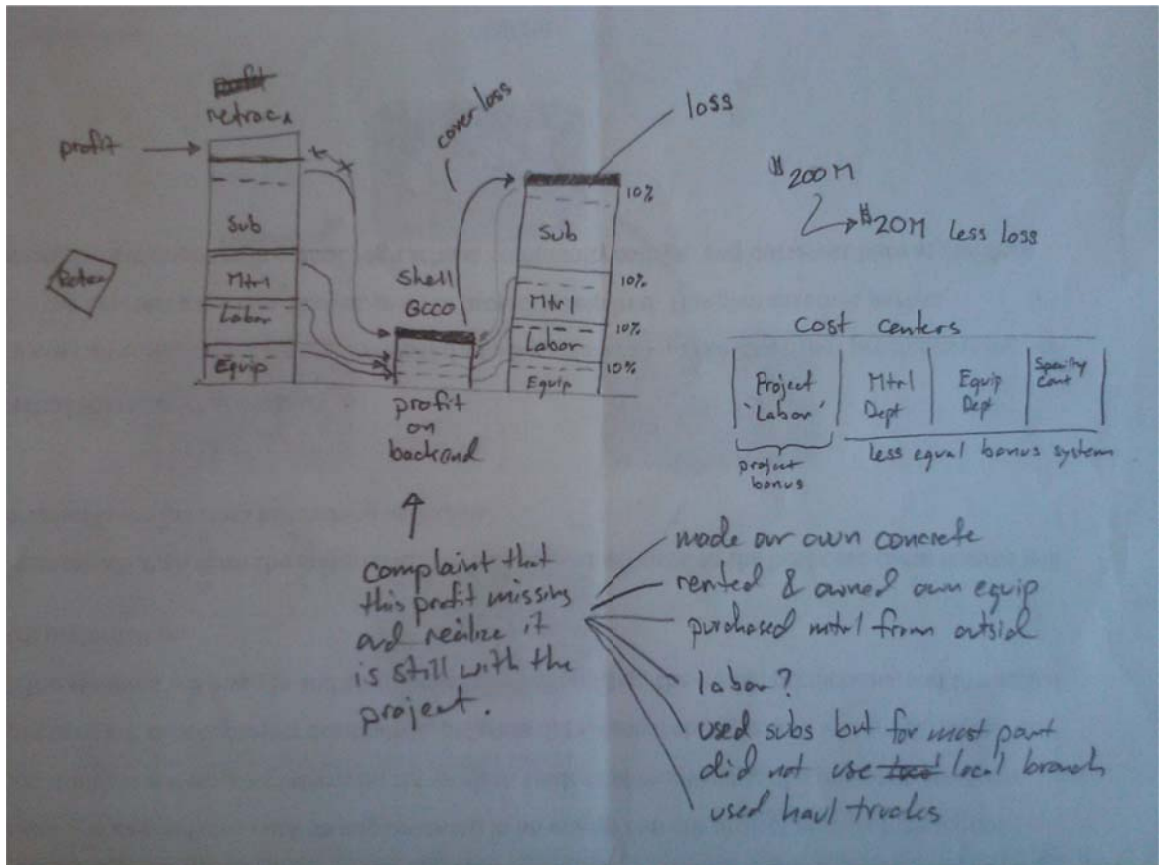 profit
retrace
profit
Sub
Mtrl
Labor
Equip
cover loss
Shell
GCCO
profit
on
backend
loss
10%
Sub
10%
Mtrl
10%
Labor
10%
Equip
$200M
$20M less loss
cost centers
Project
'Labor'
Mtrl
Dept
Equip
Dept
Specilty
Cont
project
bonus
less equal bonus system
complaint that
this profit missing
and realize it
is still with the
project.
made our own concrete
rented & owned own equip
purchased mtrl from outside
labor?
used subs but for most part
did not use local branch
used haul trucks